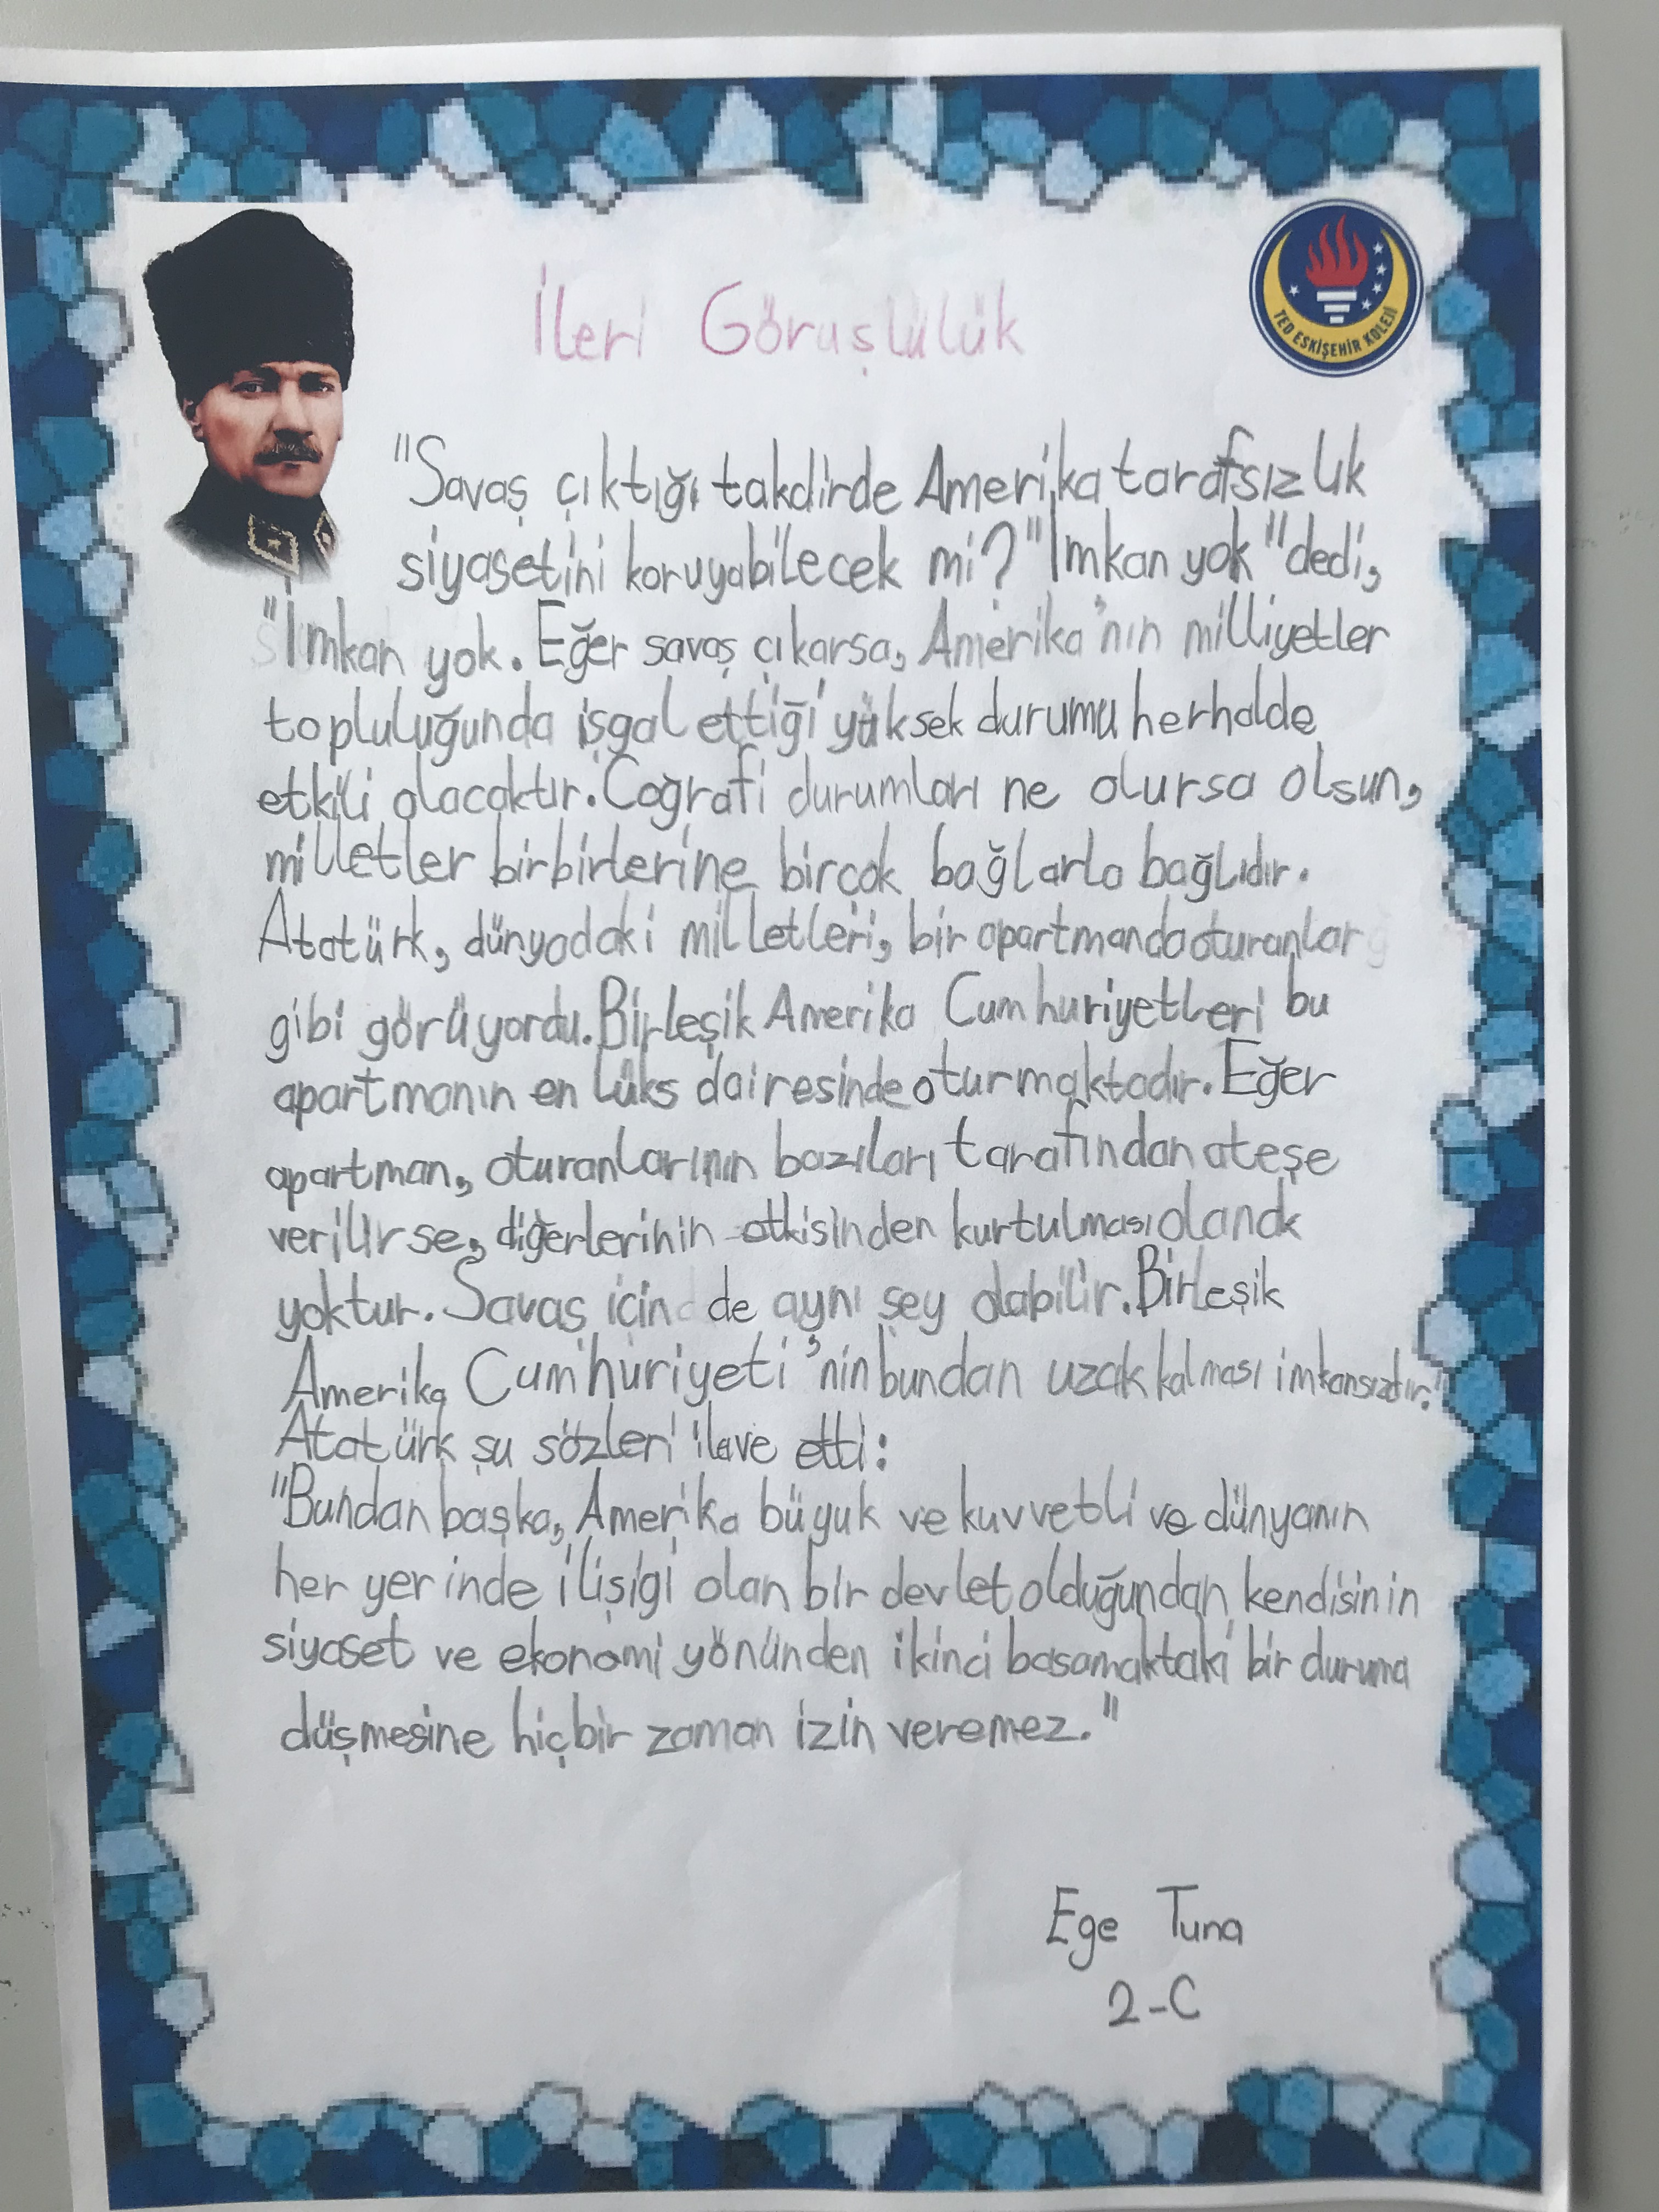 İleri Görüşlülük
TED ESKİŞEHİR KOLEJİ
"Savaş çıktığı takdirde Amerika tarafsızlık
siyasetini koruyabilecek mi?" "İmkan yok" dedi,
"İmkan yok. Eğer savaş çıkarsa, Amerika'nın milliyetler
topluluğunda işgal ettiği yüksek durumu herhalde
etkili olacaktır. Coğrafi durumları ne olursa olsun,
milletler birbirlerine birçok bağlarla bağlıdır.
Atatürk, dünyadaki milletleri, bir apartmanda oturanlar
gibi görüyordu. Birleşik Amerika Cumhuriyetleri bu
apartmanın en lüks dairesinde oturmaktadır. Eğer
apartman, oturanlarının bazıları tarafından ateşe
verilirse, diğerlerinin etkisinden kurtulması olanak
yoktur. Savaş için de aynı şey olabilir. Birleşik
Amerika Cumhuriyeti'nin bundan uzak kalması imkansızdır."
Atatürk şu sözleri ilave etti:
"Bundan başka, Amerika büyük ve kuvvetli ve dünyanın
her yerinde ilişigi olan bir devlet olduğundan, kendisinin
siyaset ve ekonomi yönünden ikinci basamaktaki bir duruma
düşmesine hiçbir zaman izin veremez."
Ege Tuna
2-C